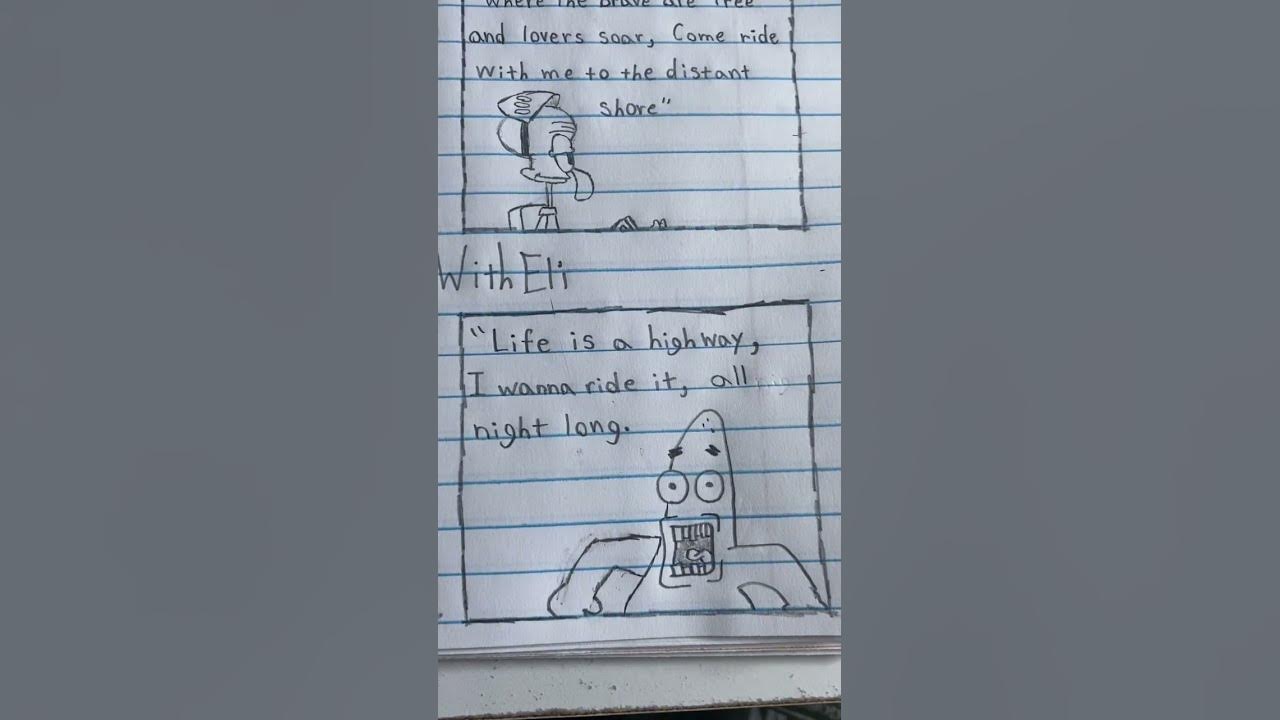 "Where the brave are free
and lovers soar, Come ride
with me to the distant
shore"
With Eli
"Life is a highway,
I wanna ride it, all
night long.